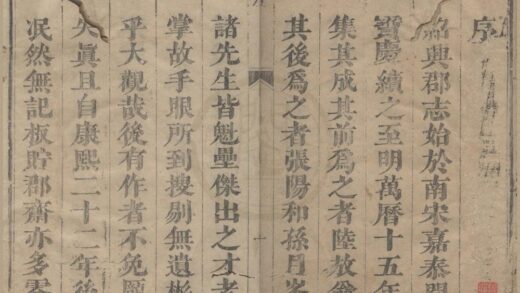 序
紹興郡志始於南宋嘉泰
寶慶續之至明萬曆十五年
集其成其前爲之者陸放翁
其後爲之者張陽和孫月峯
諸先生皆魁壘傑出之才
掌故手眼所到搜剔無遺彬
乎大觀哉後有作者不免
失眞且自康熙二十二年後
泯然無記板貯郡齋亦多零